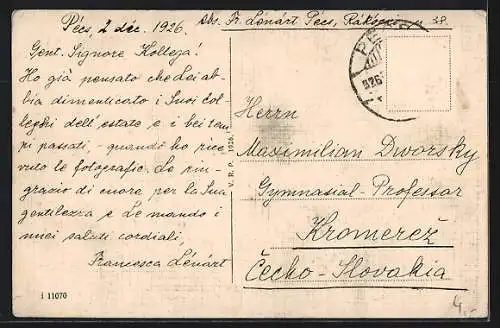 Pécs, 2 déc. 1926.
Abs. Fr. Lénárt Pécs, Rákóczi 38.
Gent. Signore Kollega!
Ho già pensato che Lei ab-
bia dimenticato i Suoi col-
leghi dell'estate e i bei tem
pi passati, quando ho rice
vuto le fotografie. Le rin-
grazio di cuore per la Sua
gentilezza e Le mando i
miei saluti cordiali.
Francesca Lénárt
i 11070
V. R. P. 1926.
926
Herrn
Maximilian Dworsky
Gymnasial-Professor
Kromerež
Čecho-Slovakia
4,-